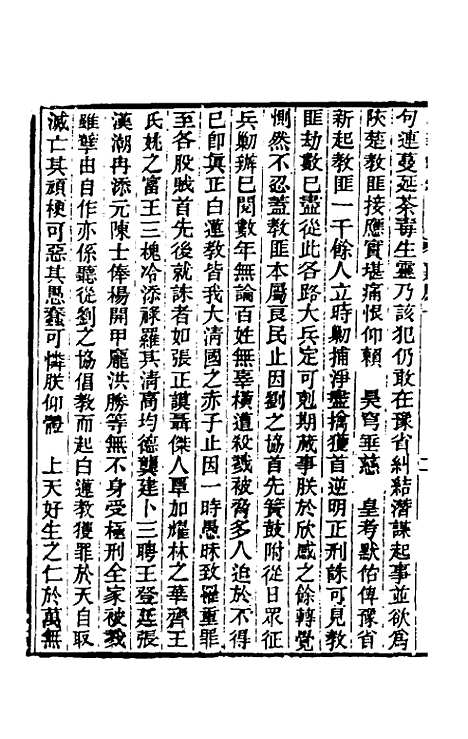 句連蔓延荼毒生靈乃該犯仍敢在豫省糾結潛謀起事並欲爲
陝楚教匪接應實堪痛恨仰賴　昊穹垂慈　皇考默佑俾豫省
新起教匪一千餘人立時勦捕淨盡擒獲首逆明正刑誅可見教
匪劫數已盡從此各路大兵定可剋期蕆事朕於欣感之餘轉覺
惻然不忍蓋教匪本屬良民止因劉之協首先簧鼓附從日眾征
兵勦辦已閱數年無論百姓無辜橫遭殺戮被脅多人迫於不得
已即眞正白蓮教皆我大清國之赤子止因一時愚昧致罹重罪
至各股賊首先後就誅者如張正謨聶傑人覃加耀林之華齊王
氏姚之富王三槐冷添祿羅其清高均德龔建卜三聘王登廷張
漢潮冉添元陳士俸楊開甲龐洪勝等無不身受極刑全家被戮
雖孽由自作亦係聽從劉之協倡教而起白蓮教獲罪於天自取
滅亡其頑梗可惡其愚蠢可憐朕仰體　上天好生之仁於萬無